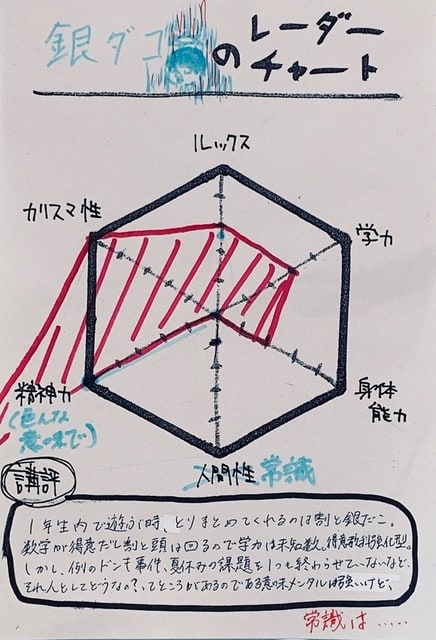 銀ダコのレーダーチャート
ルックス
カリスマ性
学力
精神力
(色んな意味で)
身体能力
人間性 常識
講評
1年生内で遊ぶ時、とりまとめてくれるのは割と銀だこ。
数学が得意だし割と頭は回るので学力は未知数。得意教科強化型。
しかし、例のドンキ事件、夏休みの課題を1つも終わらせていないなど、
それ人としてどうなの?ってところがあるのである意味メンタルは強いけど、
常識は……